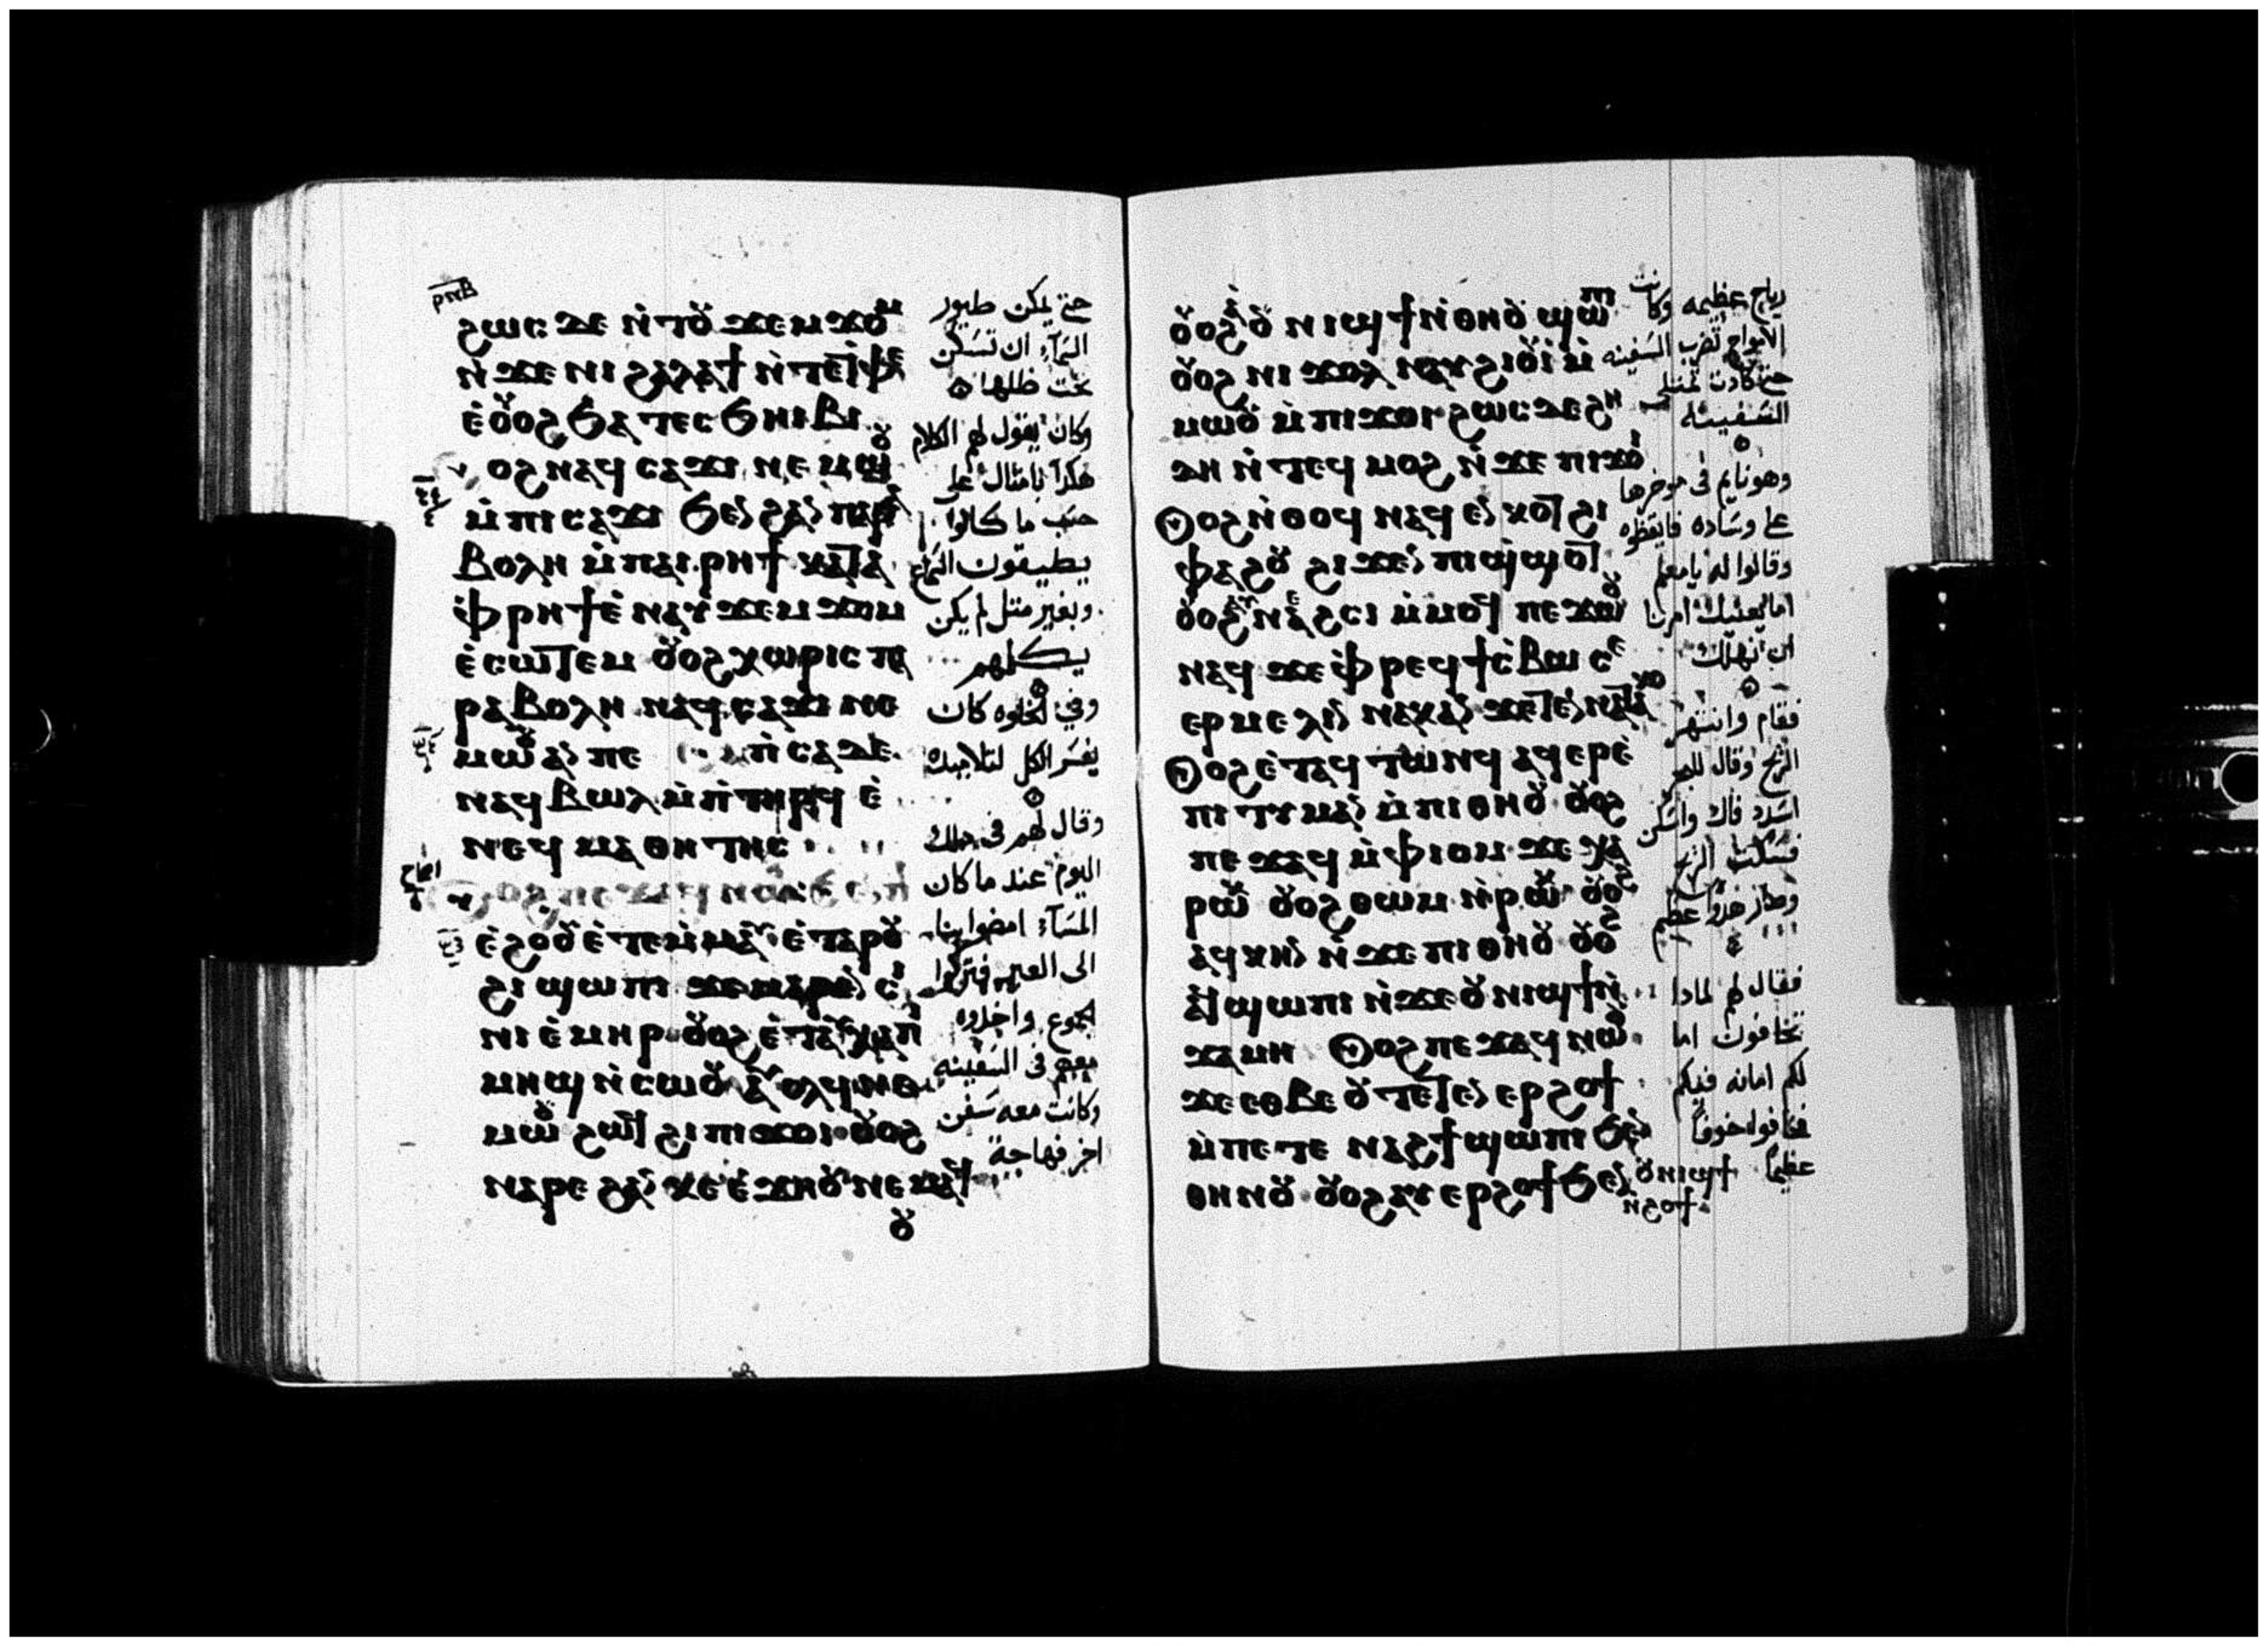 ⲣⲛⲃ
ϩⲱⲥ ⲇⲉ ⲛ̀ⲧⲟⲩ ϫⲉⲙϫⲟⲙ
ⲛ̀ϫⲉ ⲛⲓ ϩⲁⲗⲁϯ ⲛ̀ⲧⲉ ⲧⲫⲉ
ⲉ̀ⲟⲩⲟϩ ϧⲁ ⲧⲉⲥϧⲏⲓⲃⲓ
ⲟϩ ⲛⲁϥ ⲥⲁϫⲓ ⲛⲉⲙⲱⲟⲩ
ⲙ̀ⲡⲓⲥⲁϫⲓ ϧⲉⲛ ϩⲁⲛ ⲡⲁⲣⲁ
ⲃⲟⲗⲏ ⲙ̀ⲡⲁⲓⲣⲏϯ ⲕⲁⲧⲁ
ⲫ̀ⲣⲏϯ ⲉ̀ⲛⲁⲩ ϫⲉⲙϫⲟⲙ
ⲉ̀ⲥⲱⲧⲉⲙ ⲟⲩⲟϩ ⲭⲱⲣⲓⲥ ⲡⲁ
ⲣⲁⲃⲟⲗⲏ ⲛⲁϥⲥⲁϫⲓ ⲛⲉ
ⲙⲱⲟⲩ ⲁⲛ ⲡⲉ ⲛ̀ⲥⲁ ⲇⲉ
ⲛⲁϥⲃⲱⲗ ⲙ̀ⲡ̀ⲧⲏⲣϥ ⲉ̀
ⲛⲉϥ ⲙⲁⲑⲏⲧⲏⲥ
ⲟϩ ⲡⲉϫⲁϥ ⲛⲱⲟⲩ ϧⲉⲛ ⲡⲓ
ⲉ̀ϩⲟⲟⲩ ⲉ̀ⲧⲉⲙ̀ⲙⲁⲩ ⲉ̀ⲧⲁ ⲣⲟⲩ
ϩⲓ ϣⲱⲡⲓ ϫⲉ ⲙⲁⲣⲉⲛ ⲥⲓ
ⲛⲓ ⲉ̀ⲙⲏⲣ ⲟⲩⲟϩ ⲉ̀ⲧⲁⲩ ⲭⲁ ⲡⲓ
ⲙⲏϣ ⲛ̀ⲥⲱⲟⲩ ⲁⲩ ⲟⲗϥ ⲛⲉ
ⲙⲱⲟⲩ ϩⲱⲧ ϩⲓ ⲡⲓϫⲟⲓ ⲟⲩⲟϩ
ⲛⲁⲣⲉ ϩⲁⲛ ⲕⲉ ⲉ̀ϫⲏⲟⲩ ⲛⲉⲙⲁϥ
ⲟⲩ
حتي يمكن طيور
السمآء ان تسكن
تحت ظلها
وكان يقول لهم الكلام
هكذا بامثال على
حسب ما كانوا
يطيقون السماع
وبغير مثل لم يكن
يكلمهم
وفي الخلوه كان
يفسر الكل لتلاميذه
وقال لهم في ذلك
اليوم عند ما كان
المسآء امضوا بنا
الى العبر فتركوا
الجموع واخذوه
معهم في السفينه
وكانت معه سفن
اخر فهاجة
ⲟⲩⲟϩ ⲟⲩⲛⲓϣϯ ⲛ̀ⲑⲏⲟⲩ ϣⲱⲡⲓ
ⲟⲩⲟϩ ⲛⲓ ϫⲟⲗ ⲛⲁⲩϩⲓⲟⲩⲓ ⲙ̀
ⲙⲱⲟⲩ ⲙ̀ⲡⲓϫⲟⲓ ϩⲱⲥ ⲇⲉ ϩⲏ
ⲇⲏ ⲛ̀ⲧⲉϥ ⲙⲟϩ ⲛ̀ϫⲉ ⲡⲓϫⲟⲓ
ⲟϩ ⲛ̀ⲑⲟϥ ⲛⲁϥ ⲉⲛⲕⲟⲧ ϩⲓ
ⲫⲁϩⲟⲩ ϩⲓϫⲉⲛ ⲡⲓϣⲟϣⲧ
ⲟⲩⲟϩ ⲛⲉϩⲥⲓ ⲙ̀ⲙⲟϥ ⲡⲉϫⲱⲟⲩ
ⲛⲁϥ ϫⲉ ⲫ̀ⲣⲉϥϯⲥ̀ⲃⲱ ⲥ
ⲉⲣⲙⲉⲗⲓⲛ ⲛⲁⲕ ⲁⲛ ϫⲉ ⲧⲉⲛⲛⲁⲧⲁⲕⲟ
ⲟϩ ⲉ̀ⲧⲁϥⲧⲱⲛϥ ⲁϥⲉⲣⲉ̀
ⲡⲓⲧⲩⲙⲁⲛ ⲙ̀ⲡⲓⲑⲏⲟⲩ ⲟⲩⲟϩ
ⲡⲉϫⲁϥ ⲙ̀ⲫⲓⲟⲙ ϫⲉ ⲭⲁ
ⲣⲱⲕ ⲟⲩⲟϩ ⲑⲱⲙ ⲛ̀ⲣⲱⲕ ⲟⲩⲟϩ
ⲁϥⲕⲏⲛ ⲛ̀ϫⲉ ⲡⲓⲑⲏⲟⲩ ⲟⲩⲟϩ
ⲁϥϣⲱⲡⲓ ⲛ̀ϫⲉ ⲟⲩⲛⲓϣϯ ⲛ̀
ϫⲁⲙⲏ ⲟϩ ⲡⲉϫⲁϥ ⲛⲱⲟⲩ
ϫⲉ ⲉⲑⲃⲉ ⲟⲩ ⲧⲉⲧⲉⲛ ⲉⲣϩⲟϯ
ⲙ̀ⲡⲉⲧⲉ ⲛⲁϩϯ ϣⲱⲡⲓ ϧⲉⲛ
ⲑⲏⲛⲟⲩ ⲟⲩⲟϩ ⲁⲩⲉⲣϩⲟϯ ϧⲉⲛ ⲟⲩⲛⲓϣϯ
ⲛ̀ϩⲟϯ
رياح عظيمه وكانت
الامواج تضرب السفينه
حتي كادت تمتلى
السفينه
وهو نايم في موخرها
على وساده فايقظوه
وقالوا له يا معلم
اما يعنيك امرنا
ان نهلك
فقام وانتهر
الريح وقال للبحر
اسدد فاك واسكن
فسكنت الريح
وصار هدوا عظيم
فقال لهم لماذا
تخافون اما
لكم امانه فيكم
فخافوا خوفا
عظيما